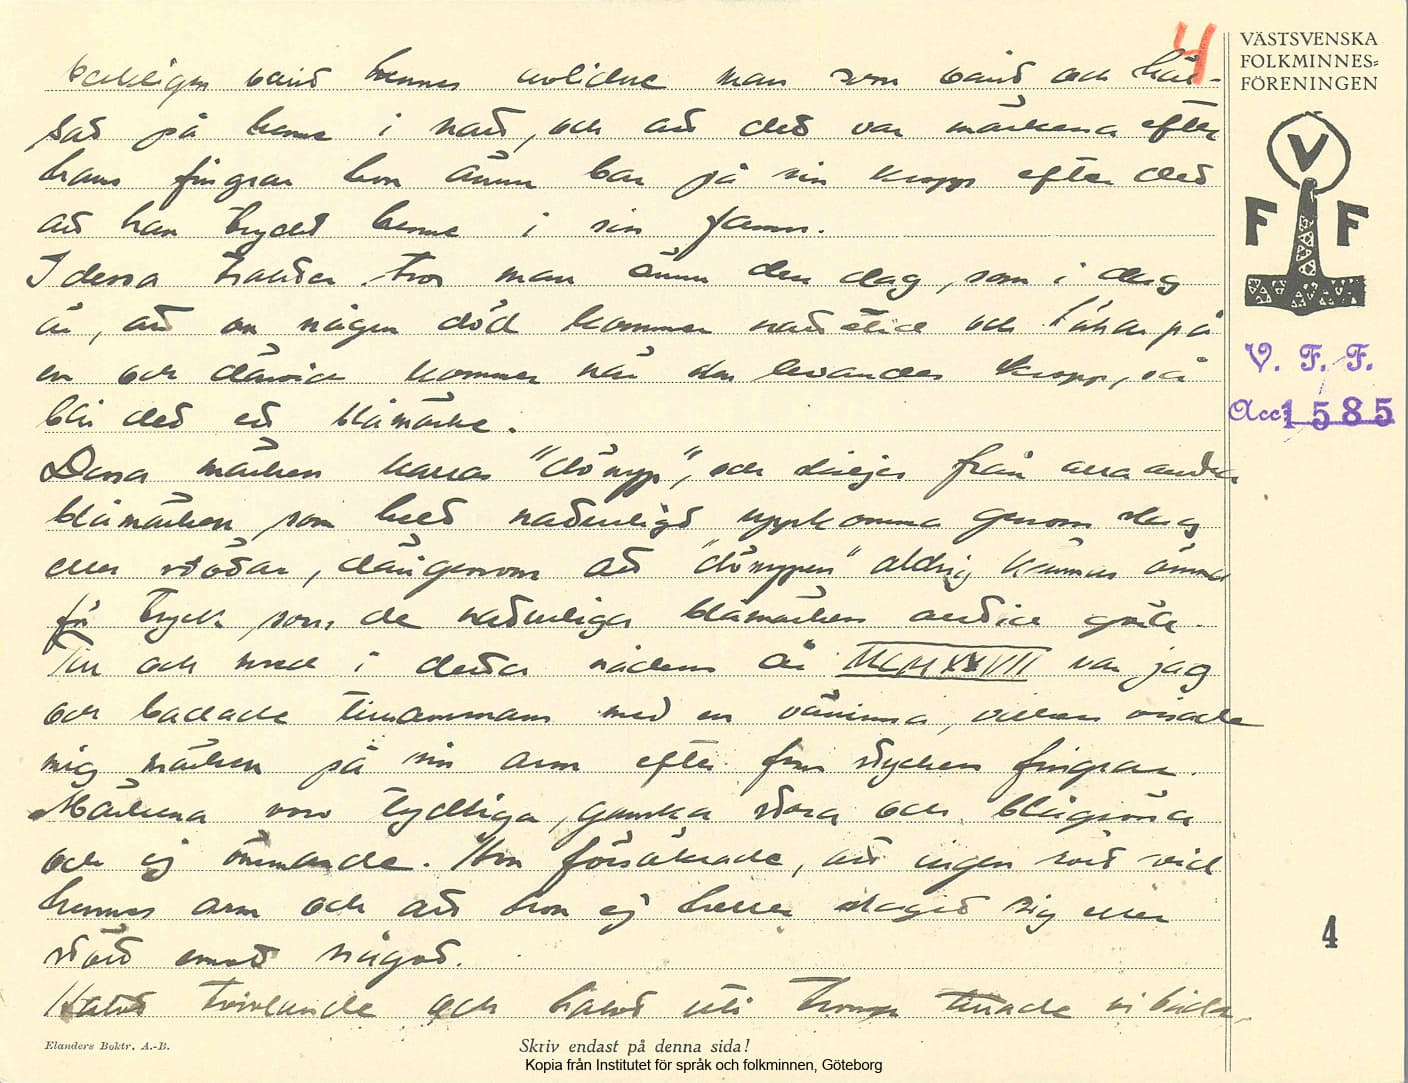 4
verkligen varit hennes avlidne man som varit och häl-
sat på henne i natt, och att det var märkena efter
hans fingrar hon ännu bar på sin kropp efter det
att han tryckt henne i sin famn.
I dessa trakter tror man ännu den dag, som i dag
är, att om någon död kommer nattetid och hälsar på
en och därvid kommer när den levandes kropp, så
blir det ett blåmärke.
Dessa märken kallas "dönyp", och skiljes från alla andra
blåmärken, som helt naturligt uppkomma genom slag
eller stötar, därigenom att "dönypen" aldrig kännas ömma
för tryck, som de naturliga blåmärken alltid göra.
Till och med i detta nådens år MCMXXVII var jag
och badade tillsammans med en väninna, vilken visade
mig märken på sin arm efter fem stycken fingrar.
Märkena voro tydliga, ganska stora och blågröna
och ej ömmande. Hon försäkrade, att ingen rört vid
hennes arm och att hon ej heller slagit sig eller
stött emot något.
Halvt tvivlande och halvt uti tron tittade vi båda,
VÄSTSVENSKA
FOLKMINNES-
FÖRENINGEN
V
F F
V. F. F.
Acc 1585
4
Elanders Boktr. A.-B.
Skriv endast på denna sida!
Kopia från Institutet för språk och folkminnen, Göteborg